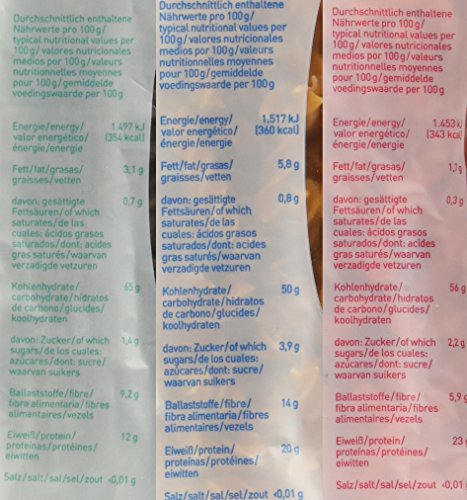 Durchschnittlich enthaltene
Nährwerte pro 100g/
typical nutritional values per
100g/valores nutricionales
medios por 100g/valeurs
nutritionnelles moyennes
pour 100g/gemiddelde
voedingswaarde per 100g
Energie/energy/ 1.497 kJ
valor energético/ (354 kcal)
énergie/energie
Fett/fat/grasas/ 3,1 g
graisses/vetten
davon: gesättigte 0,7 g
Fettsäuren/of which
saturates/de las
cuales: ácidos grasos
saturados/dont: acides
gras saturés/waarvan
verzadigde vetzuren
Kohlenhydrate/ 65 g
carbohydrate/hidratos
de carbono/glucides/
koolhydraten
davon: Zucker/of which 1,4 g
sugars/de los cuales:
azúcares/dont: sucre/
waarvan suikers
Ballaststoffe/fibre/ 9,2 g
fibra alimentaria/fibres
alimentaires/vezels
Eiweiß/protein/ 12 g
proteínas/protéines/
eiwitten
Salz/salt/sal/sel/zout <0,01 g
Durchschnittlich enthaltene
Nährwerte pro 100g/
typical nutritional values per
100g/valores nutricionales
medios por 100g/valeurs
nutritionnelles moyennes
pour 100g/gemiddelde
voedingswaarde per 100g
Energie/energy/ 1.517 kJ
valor energético/ (360 kcal)
énergie/energie
Fett/fat/grasas/ 5,8 g
graisses/vetten
davon: gesättigte 0,8 g
Fettsäuren/of which
saturates/de las
cuales: ácidos grasos
saturados/dont: acides
gras saturés/waarvan
verzadigde vetzuren
Kohlenhydrate/ 50 g
carbohydrate/hidratos
de carbono/glucides/
koolhydraten
davon: Zucker/of which 3,9 g
sugars/de los cuales:
azúcares/dont: sucre/
waarvan suikers
Ballaststoffe/fibre/ 14 g
fibra alimentaria/fibres
alimentaires/vezels
Eiweiß/protein/ 20 g
proteínas/protéines/
eiwitten
Salz/salt/sal/sel/zout <0,01 g
Durchschnittlich enthaltene
Nährwerte pro 100g/
typical nutritional values per
100g/valores nutricionales
medios por 100g/valeurs
nutritionnelles moyennes
pour 100g/gemiddelde
voedingswaarde per 100g
Energie/energy/ 1.453 kJ
valor energético/ (343 kcal)
énergie/energie
Fett/fat/grasas/ 1,1 g
graisses/vetten
davon: gesättigte 0,3 g
Fettsäuren/of which
saturates/de las
cuales: ácidos grasos
saturados/dont: acides
gras saturés/waarvan
verzadigde vetzuren
Kohlenhydrate/ 56 g
carbohydrate/hidratos
de carbono/glucides/
koolhydraten
davon: Zucker/of which 2,2 g
sugars/de los cuales:
azúcares/dont: sucre/
waarvan suikers
Ballaststoffe/fibre/ 5,9 g
fibra alimentaria/fibres
alimentaires/vezels
Eiweiß/protein/ 23
proteínas/protéines/
eiwitten
Salz/salt/sal/sel/zout <0,01